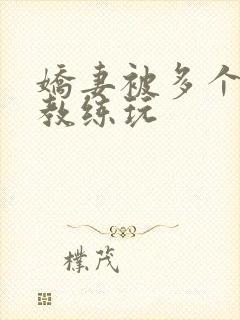 嬌妻被多个
教练玩
樸茂